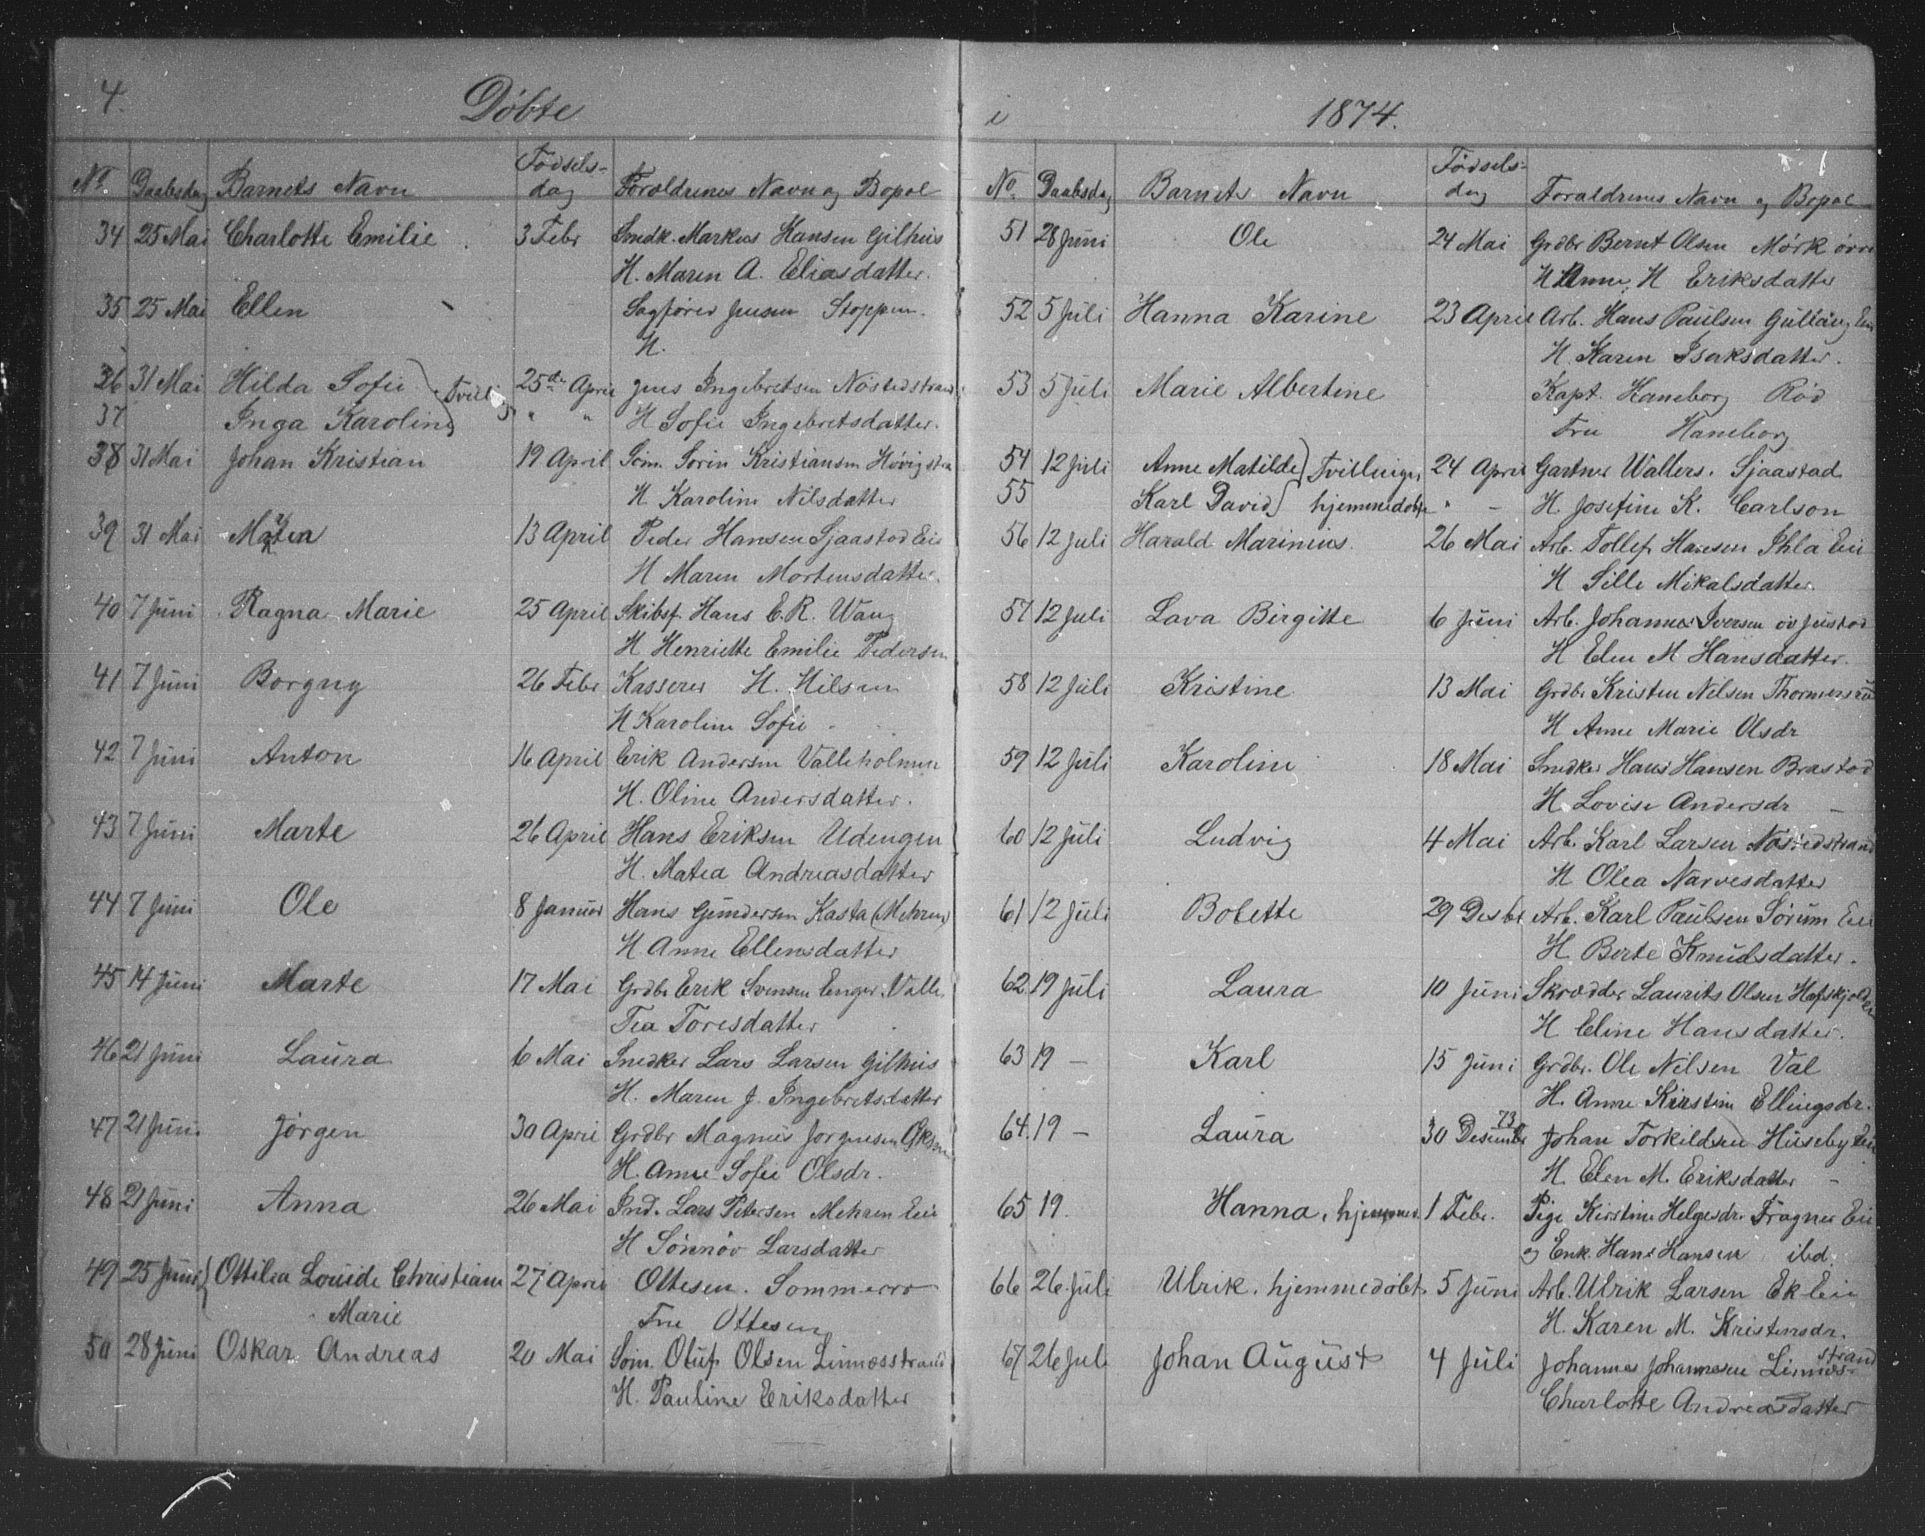 4. Döbte i 1874.
No. Daabsdag Barnets Navn Fødselsdag Forældrenes Navn og Bopæl
34 25 Mai Charlotte Emilie 3 Febr Snedk. Markus Hansen Gilhus
H. Maren A. Eliasdatter.
35 25 Mai Ellen Sagfører Jensen Stoppen.
H.
36 31 Mai Hilda Sofie Tvilling 25de April Jens Ingebretsen Nöstedstrand
37 Inga Karoline " " H Sofie Ingebretsdatter.
38 31 Mai Johan Kristian 19 April Söm. Sörin Kristiansen
H Karoline Nilsdatter
39 31 Mai 13 April Peder Hansen Sjaastad Eie
H Maren Mortensdatter.
40 7 Juni Ragna Marie 25 April Skibsf. Hans E. R. Wang
H Henriette Emilie Pedersen
41 7 Juni Borgny 26 Febr Kasserer H. Nilsen
H Karoline Sofie
42 7 Juni Anton 16 April Erik Andersen Valleholmen
H. Oline Andersdatter.
43 7 Juni Marte 26 April Hans Eriksen Udengen
H. Matea Andreasdatter
44 7 Juni Ole 8 Januar Hans Gundersen Kasta (Mehren)
H Anne Ellensdatter
45 14 Juni Marte 17 Mai Grdbr Erik Svensen Enger. Valle
Tea Toresdatter
46 21 Juni Laura 6 Mai Snedker Lars Larsen Gilhus
H. Maren J. Ingebretsdatter
47 21 Juni Jörgen 30 April Grdbr Magnus Jorgensen
H. Anne Sofie Olsdr.
48 21 Juni Anna 26 Mai Ind. Lars Petersen Mehren Eie
H Sönnöv Larsdatter
49 25 Juni Ottilia Louide Christiane 27 April Ottesen. Sommerro
Marie Fru Ottesen
50 28 Juni Oskar Andreas 20 Mai Söm. Oluf Olsen Linnæsstrand
H. Pauline Eriksdatter
No. Daabsdag Barnets Navn Fødselsdag Forældrenes Navn og Bopæl
51 28 Juni Ole 24 Mai Grdbr Bernt Olsen Mörk övre
H Anne H Eriksdatter
52 5 Juli Hanna Karine 23 April Arb. Hans Paulsen Gullaug Eie
H. Karen Isaksdatter.
53 5 Juli Marie Albertine Kapt. Haneborg Röd
Fru Haneborg
54 12 Juli Anne Matilde Tvillinger 24 April Gartner Walters. Sjaastad
55 Karl David hjemmedöbte " - H. Josefine K. Carlson
56 12 Juli Harald Marinius. 26 Mai Arb. Tollef Hansen Ihla Eie
H Sille Mikalsdatter.
57 12 Juli Lava Birgitte 6 Juni Arb. Johannes Iversen öv Justad
H Elen M Hansdatter.
58 12 Juli Kristine 13 Mai Grdbr Kristen Nilsen
H Anne Marie Olsdr
59 12 Juli Karoline 18 Mai Snedker Hans Hansen Brastad
H Lovise Andersdr -
60 12 Juli Ludvig 4 Mai Arb. Karl Larsen Nöstedstrand
H Olea Narvesdatter
61 12 Juli Bolette 29 Desbr Arb. Karl Paulsen Sörum Eie
H Berte Knudsdatter.
62 19 Juli Laura 10 Juni Skrædder Laurits Olsen
H Eline Hansdatter.
63 19 - Karl 15 Juni Grdbr. Ole Nilsen Val
H. Anne Kirstine Ellingsdr.
64. 19 - Laura 30 Desember 73 Johan Torkildsen Huseby Eie
H. Elen M. Eriksdatter -
65 19. Hanna, hjemmed. 1 Febr. Pige Kirstine Helgesdr. Fragnes Eie
og Enk. Hans Hansen ibd.
66 26. Juli Ulrik, hjemmedöbt. 5 Juni Arb. Ulrik Larsen Ek Eie
H. Karen M. Kristensdr.
67 26 Juli Johan August 4 Juli Johannes Johannesen Linnæsstrand
Charlotte Andreasdatter